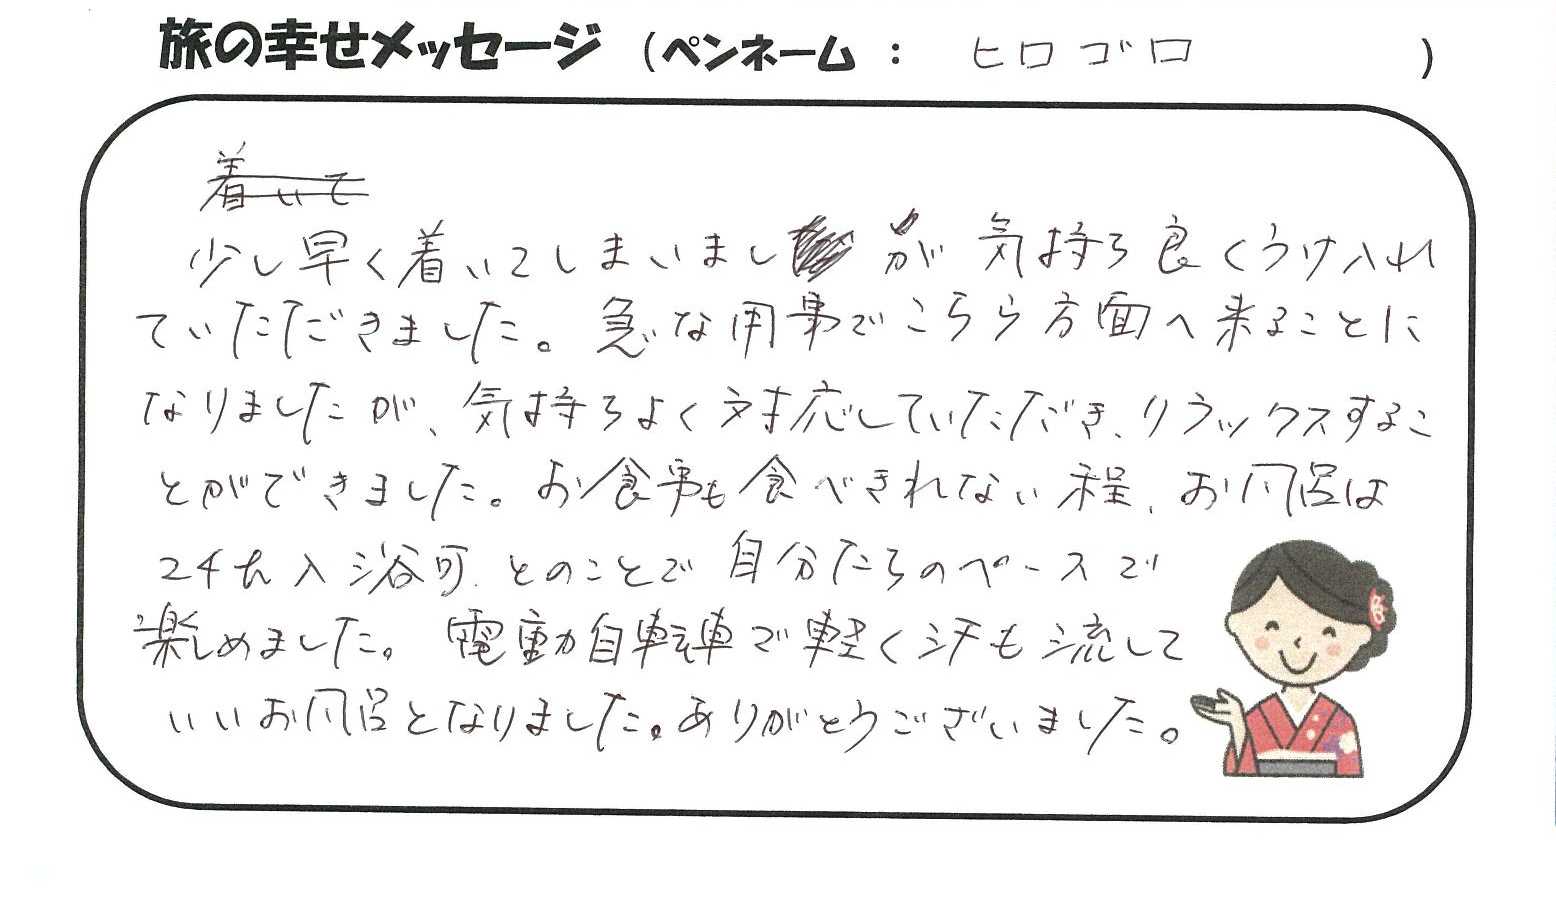 旅の幸せメッセージ (ペンネーム : ヒロゴロ )
着いて
少し早く着いてしまいましが 気持ち良くうけ入れ
ていただきました。急な用事でこちら方面へ来ることに
なりましたが、気持ちよく対応していただき、リラックスするこ
とができました。お食事も食べきれない程、お風呂は
24h入浴可、とのことで自分たちのペースで
楽しめました。電動自転車で軽く汗も流して
いいお風呂となりました。ありがとうございました。